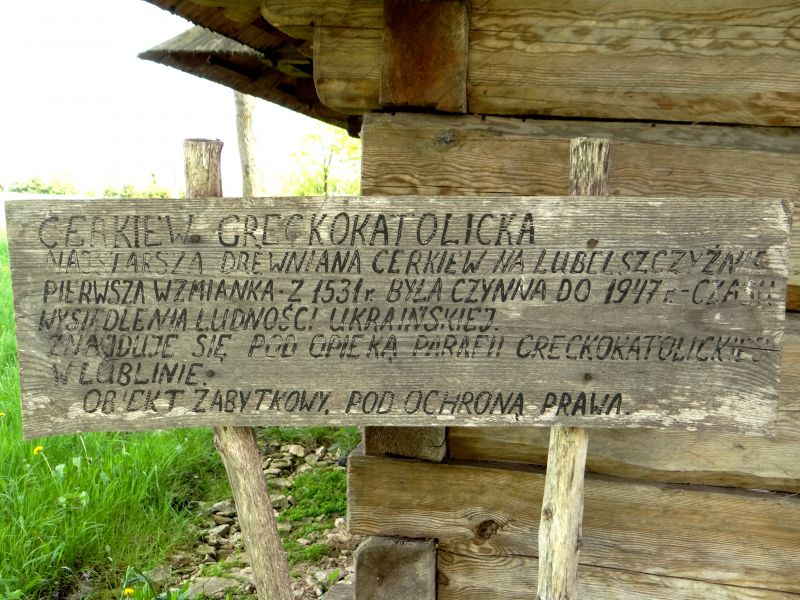 CERKIEW GRECKOKATOLICKA
NAJSTARSZA DREWNIANA CERKIEW NA LUBELSZCZYŹNIE
PIERWSZA WZMIANKA - Z 1531 r. BYŁA CZYNNA DO 1947 r. - CZASU
WYSIEDLENIA LUDNOŚCI UKRAIŃSKIEJ.
ZNAJDUJE SIĘ POD OPIEKĄ PARAFII GRECKOKATOLICKIEJ
W LUBLINIE.
OBIEKT ZABYTKOWY, POD OCHRONĄ PRAWA.